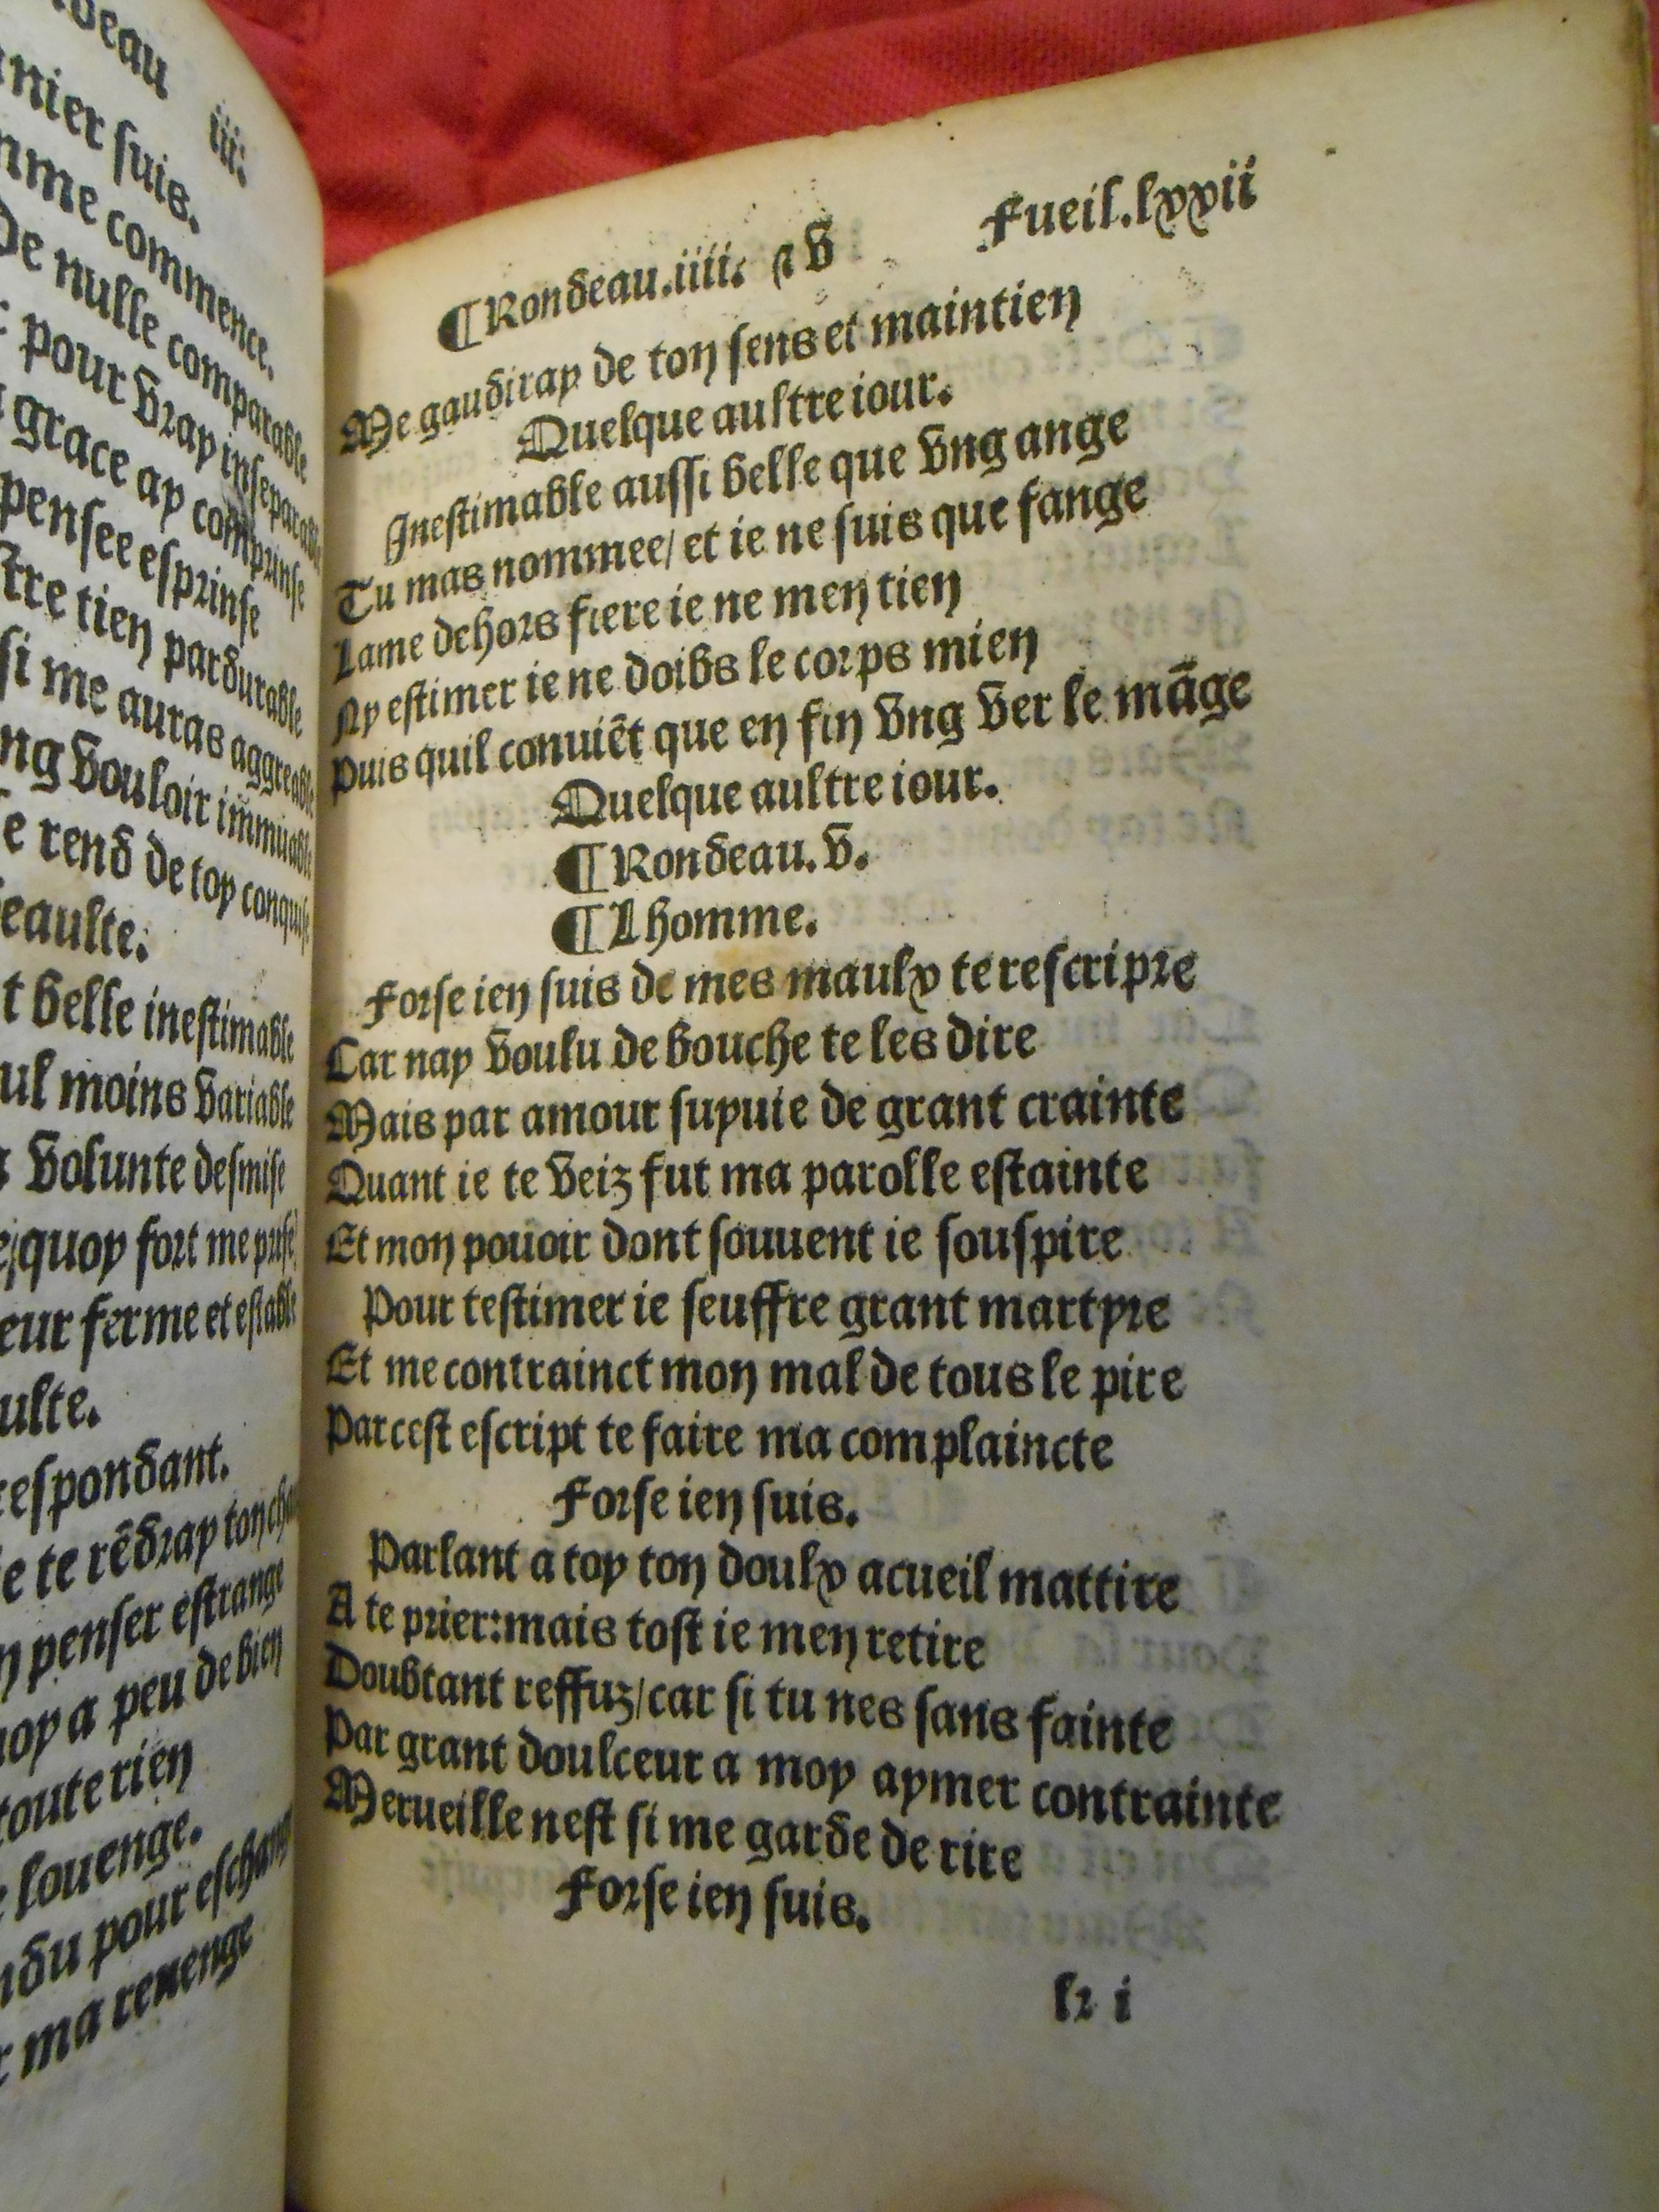 deau iii.
nier suis.
mme commence.
De nulle comparable
pour vray inseparable
grace ay comprinse
pensee esprinse
tre tien pardurable
si me auras aggreable
ng vouloir immuable
e rend de toy conquise
eaulte.
t belle inestimable
ul moins variable
volunte desmise
quoy fort me prise
eur ferme et estable
ulte.
respondant.
ie te rẽdray ton
n penser estrange
moy a peu de bien
toute rien
louenge.
ndu pour eschange
ma reuenge
¶Rondeau.iiii. ⁊ v Fueil.lxxii
Me gaudiray de ton sens et maintien
Quelque aultre iour.
Inestimable aussi belle que vng ange
Tu mas nommee/ et ie ne suis que fange
Lame dehors fiere ie ne men tien
Ny estimer ie ne doibs le corps mien
Puis quil conuiẽt que en fin vng ver le mãge
Quelque aultre iour.
¶Rondeau. v.
¶Lhomme.
Forse ien suis de mes maulx te rescripre
Car nay voulu de bouche te les dire
Mais par amour supuie de grant crainte
Quant ie te veiz fut ma parolle estainte
Et mon pouoir dont souuent ie souspire
Pour testimer ie seuffre grant martyre
Et me contrainct mon mal de tous le pire
Par cest escript te faire ma complaincte
Forse ien suis.
Parlant a toy ton doulx acueil mattire
A te prier: mais tost ie men retire
Doubtant reffuz/ car si tu nes sans fainte
Par grant doulceur a moy aymer contrainte
Merueille nest si me garde de rire
Forse ien suis.
k i